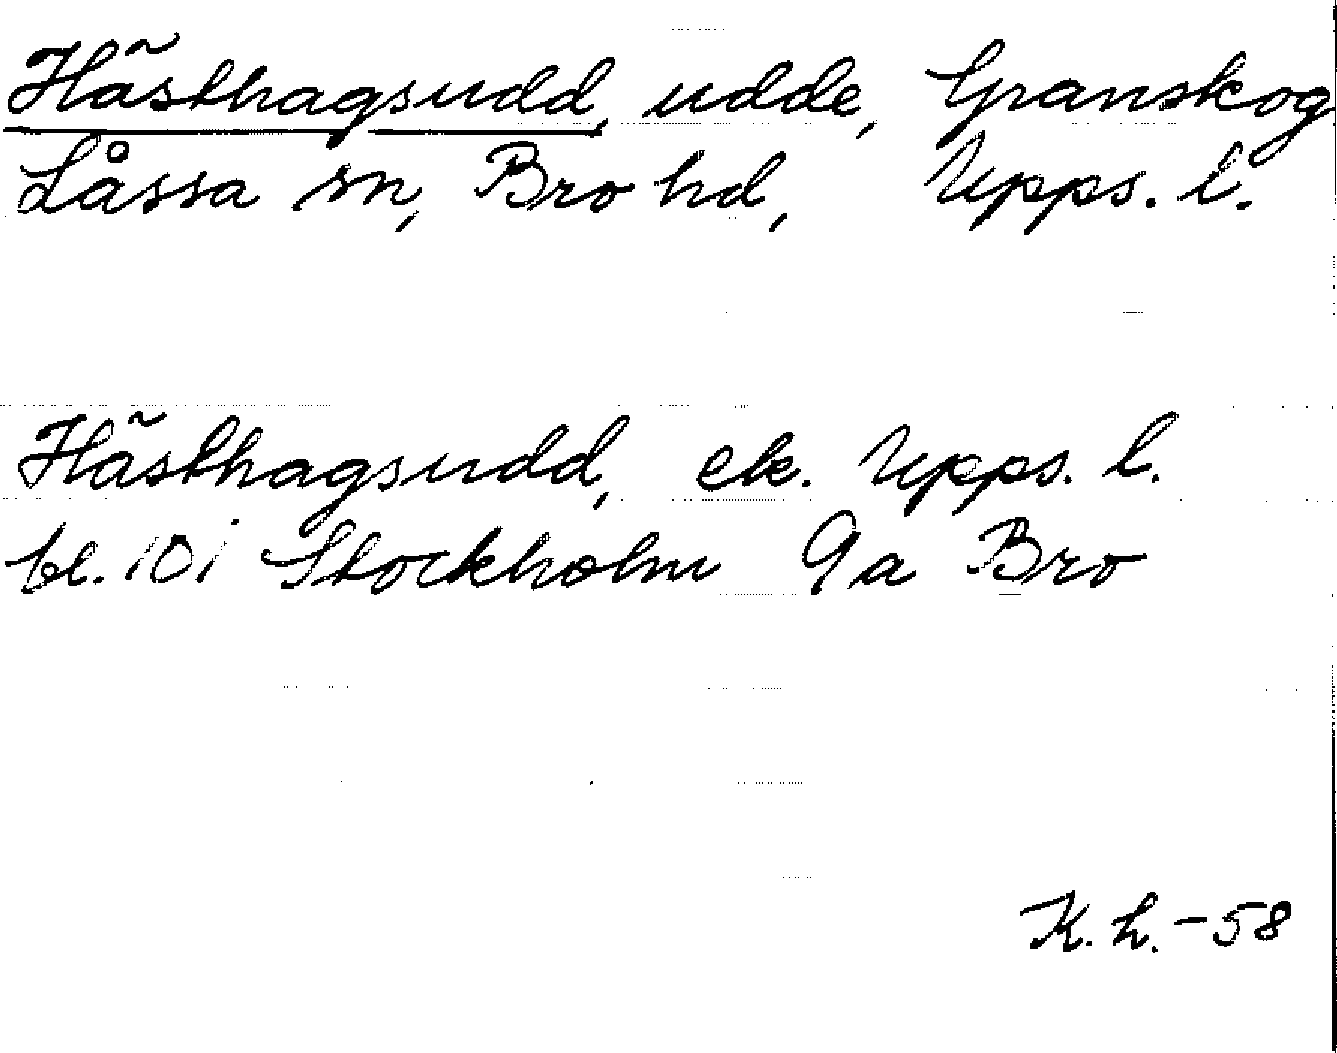 Hästhagsudd, udde, Granskog
Låssa sn, Bro hd, Upps. l.
Hästhagsudd, ek. Upps. l.
bl. 10 i Stockholm 9a Bro
K. h. - 58